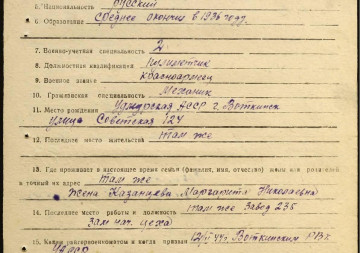 5. Национальность русский
6. Образование среднее окончил в 1936 году.
7. Военно-учетная специальность 2
8. Должностная квалификация пулиметчик
9. Военное звание красноармеец
10. Гражданская специальность Механик
11. Место рождения Удмурская АССР г. Воткинск
улица Советская 124
12. Последнее место жительства там же
13. Где проживает в настоящее время семья (фамилия, имя, отчество) жены или родителей
и точный их адрес там же
Жена Казанцева Маргарита Николаевна
14. Последнее место работы и должность там же Завод 235
Зам нач. цеха
15. Каким райвоенкоматом и когда призван Воткинским РВК